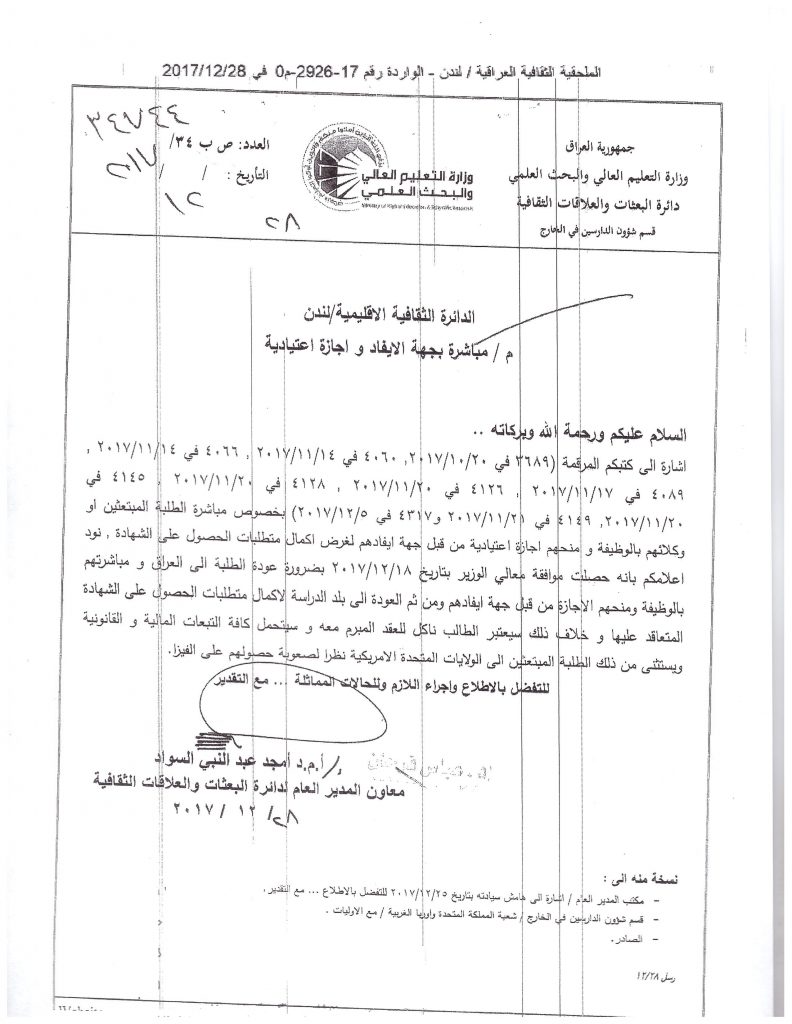 الملحقية الثقافية العراقية / لندن - الواردة رقم 17-2926-م0 في 2017/12/28
جمهورية العراق
وزارة التعليم العالي والبحث العلمي
دائرة البعثات والعلاقات الثقافية
قسم شؤون الدارسين في الخارج
وزارة التعليم العالي
والبحث العلمي
Ministry of Higher Education & Scientific Research
العدد: ص ب ٣٤/ ٣٤٧٤٤
التاريخ : / / ٢٠١٧
١٢
٢٨
الدائرة الثقافية الاقليمية/لندن
م / مباشرة بجهة الايفاد و اجازة اعتيادية
السلام عليكم ورحمة الله وبركاته ..
اشارة الى كتبكم المرقمة (٣٦٨٩ في ٢٠١٧/١٠/٢٠, ٤٠٦٠ في ٢٠١٧/١١/١٤ , ٤٠٦٦ في ٢٠١٧/١١/١٤ ,
٤٠٨٩ في ٢٠١٧/١١/١٧ , ٤١٢٦ في ٢٠١٧/١١/٢٠ , ٤١٢٨ في ٢٠١٧/١١/٢٠ , ٤١٤٥ في
٢٠١٧/١١/٢٠, ٤١٤٩ في ٢٠١٧/١١/٢١ و٤٣١٧ في ٢٠١٧/١٢/٥) بخصوص مباشرة الطلبة المبتعثين او
وكلائهم بالوظيفة و منحهم اجازة اعتيادية من قبل جهة ايفادهم لغرض اكمال متطلبات الحصول على الشهادة , نود
اعلامكم بانه حصلت موافقة معالي الوزير بتاريخ ٢٠١٧/١٢/١٨ بضرورة عودة الطلبة الى العراق و مباشرتهم
بالوظيفة ومنحهم الاجازة من قبل جهة ايفادهم ومن ثم العودة الى بلد الدراسة لاكمال متطلبات الحصول على الشهادة
المتعاقد عليها و خلاف ذلك سيعتبر الطالب ناكل للعقد المبرم معه و سيتحمل كافة التبعات المالية و القانونية
ويستثنى من ذلك الطلبة المبتعثين الى الولايات المتحدة الامريكية نظرا لصعوبة حصولهم على الفيزا.
للتفضل بالاطلاع واجراء اللازم وللحالات المماثلة ... مع التقدير
أ.م.د أمجد عبد النبي السواد
معاون المدير العام لدائرة البعثات والعلاقات الثقافية
٢٨/ ١٢ / ٢٠١٧
نسخة منه الى :
- مكتب المدير العام / اشارة الى هامش سيادته بتاريخ ٢٠١٧/١٢/٢٥ للتفضل بالاطلاع ... مع التقدير .
- قسم شؤون الدارسين في الخارج / شعبة المملكة المتحدة واوربا الغربية / مع الاوليات .
- الصادر .
رسل ١٢/٢٨